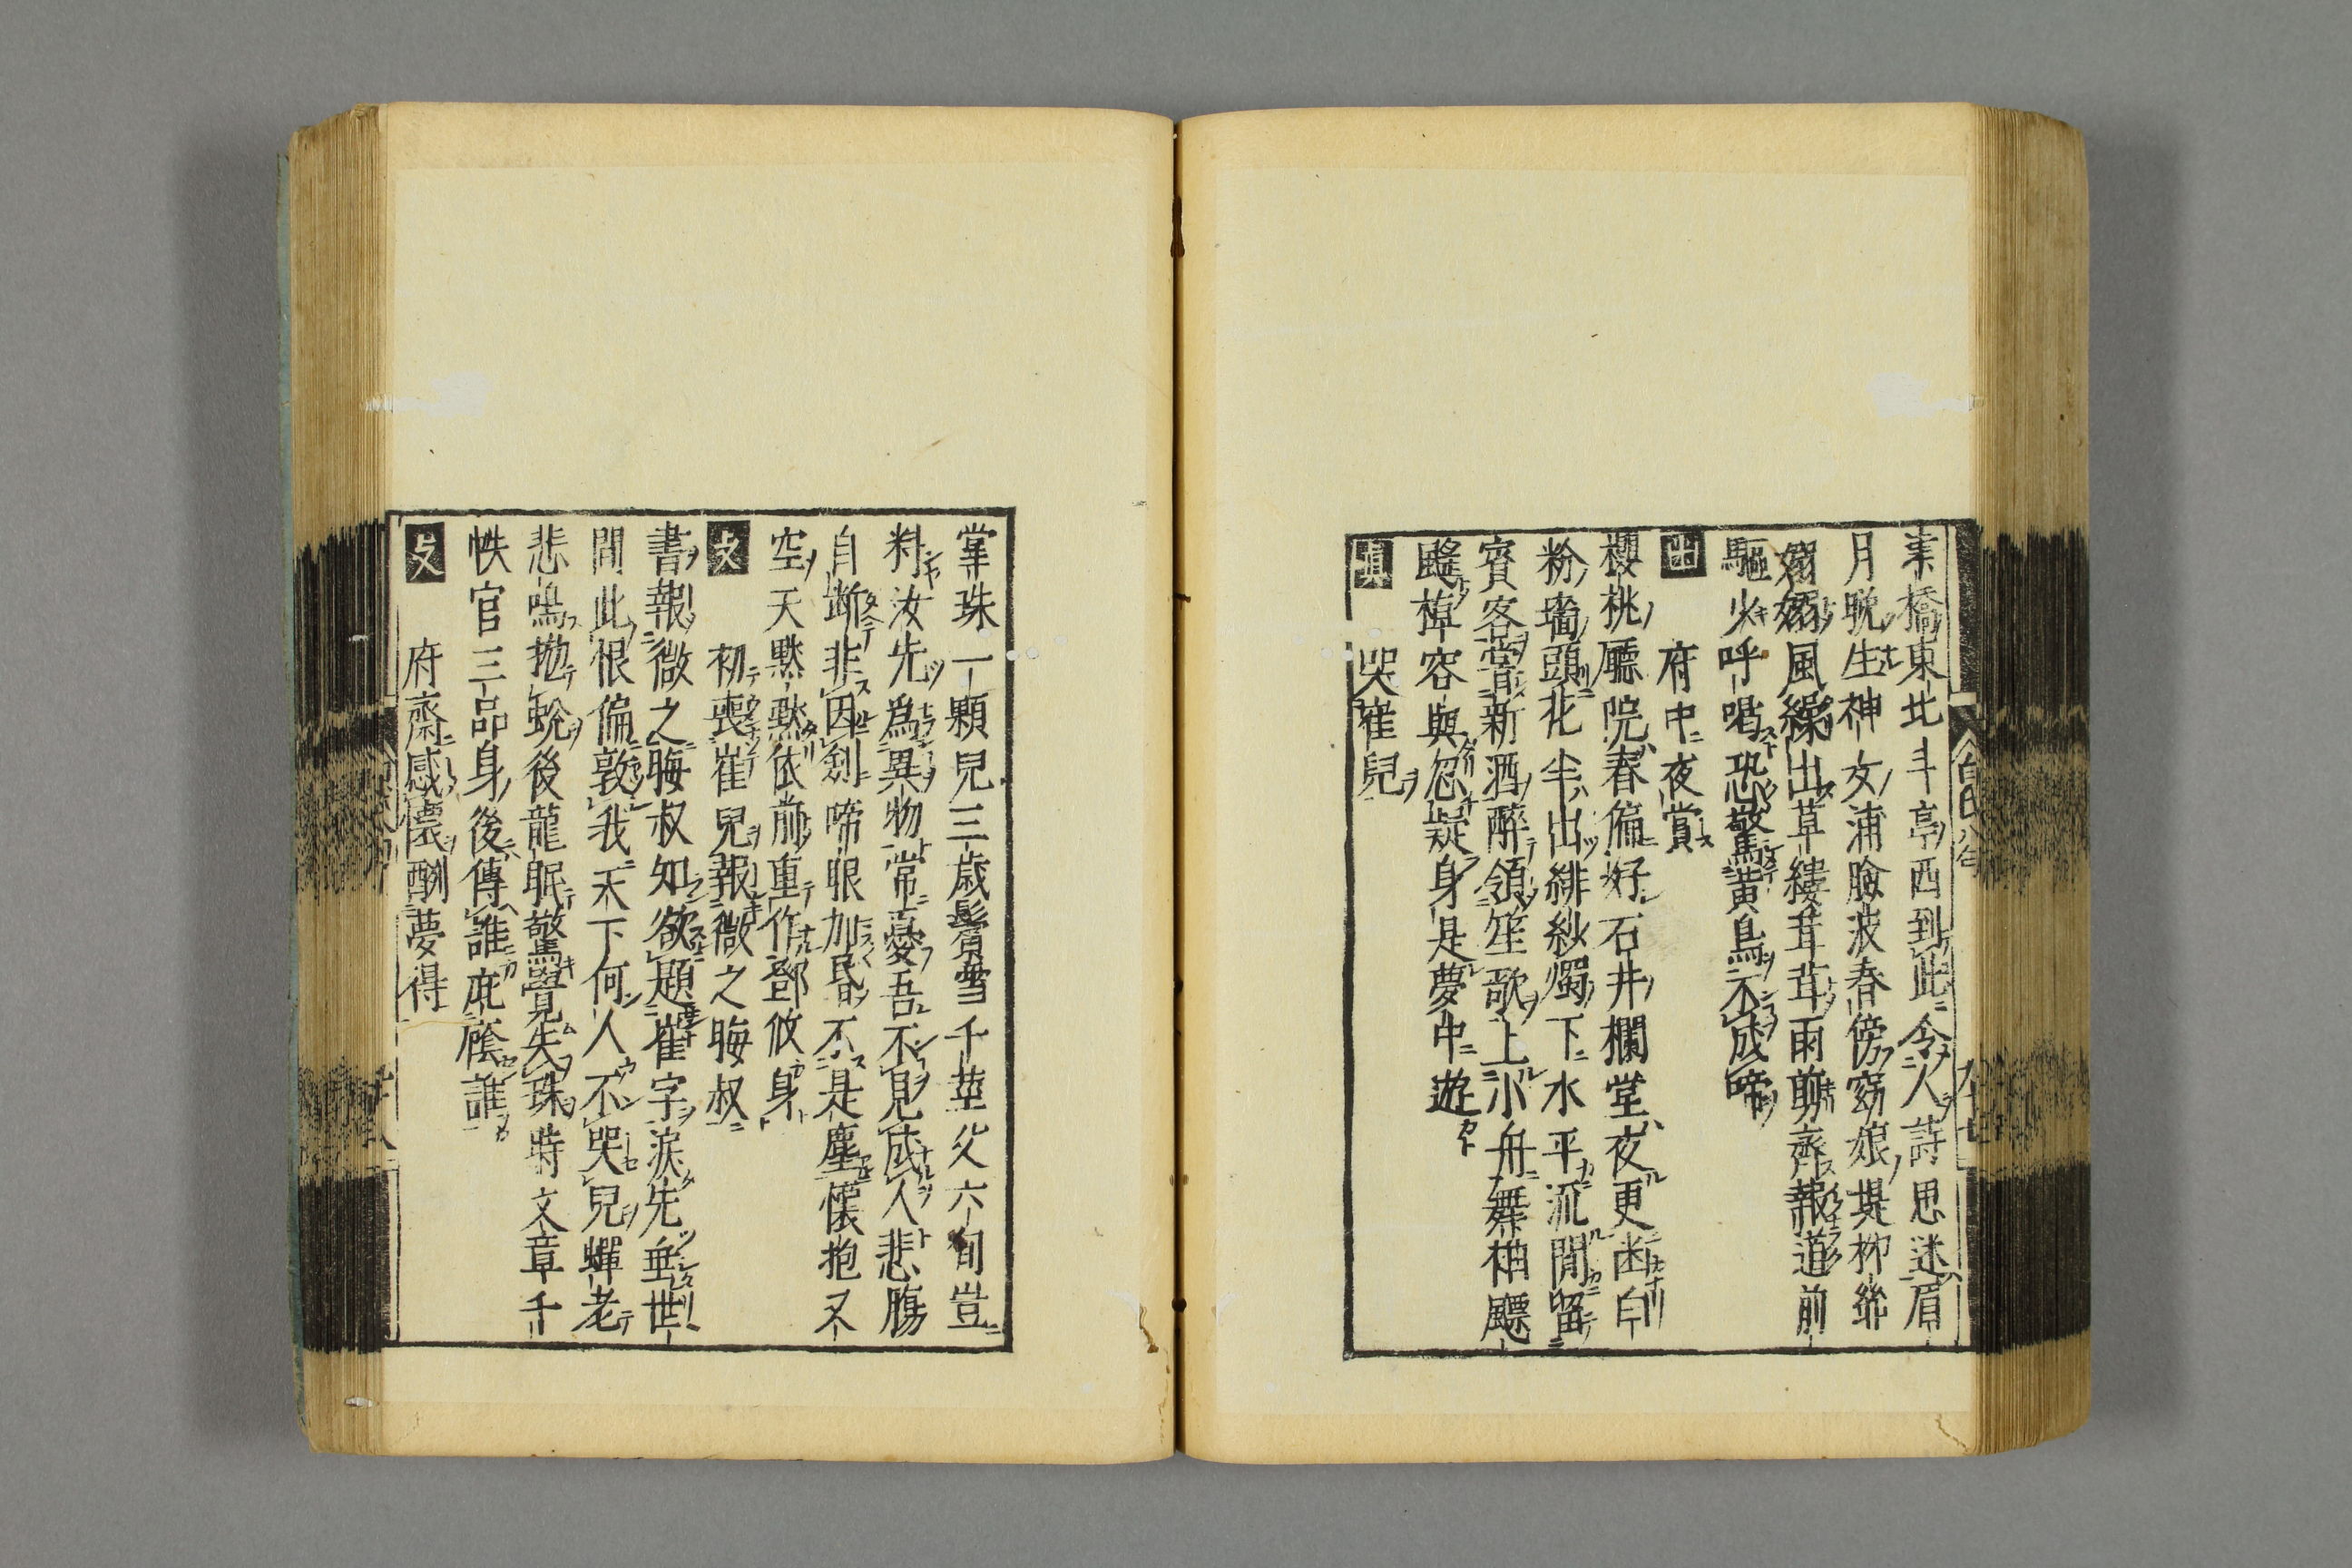 橋東北斗亭西到此令人詩思迷眉
月晩生神女浦臉波春傍窈娘堤柳絲
嫋嫋風繰出草縷茸茸雨剪齊報道前
驅少呼喝恐驚黄鳥不成啼
府中夜賞
櫻桃廳院春偏好石井欄堂夜更幽
粉墻頭花半出緋紗燭下水平流閒留
賓客甞新酒醉領笙歌上小舟舞袖飄
棹容與忽疑身是夢中遊
真
哭崔兒
掌珠一顆兒三歳鬢雪千莖父六旬豈
料汝先為異物常憂吾不見成人悲腸
自断非因劍啼眼加昬不是塵懷抱又
空天黙黙依前重作鄧攸身
初喪崔兒報微之晦叔
書報微之晦叔知欲題崔字涙先垂世
間此恨偏敦我天下何人不哭兒蟬老
悲鳴抛蛻後龍眠驚覺失珠時文章千
帙官三品身後傳誰庇廕誰
府齋感懷酬夢得